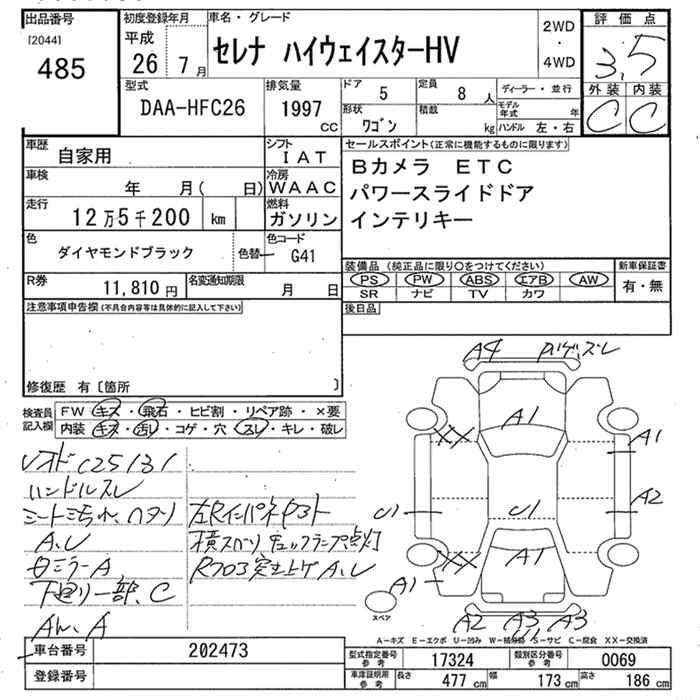 出品番号
[2044]
485
初度登録年月
平成
26 7月
車名・グレード
セレナ ハイウェイスターHV
2WD
・
4WD
評価点
3.5
外装 内装
C C
型式
DAA-HFC26
排気量
1997
CC
ドア 5
形状
ワゴン
定員 8 人
積載 kg
ディーラー・並行
モデル年式 年
ハンドル 左・右
車歴 自家用
シフト IAT
車検 年 月( 日)
冷房 WAAC
走行 12万5千200 km
燃料 ガソリン
色 ダイヤモンドブラック
色替
色コード G41
R券 11,810円
名変通知期限 月 日
セールスポイント(正常に機能するものに限ります)
Bカメラ ETC
パワースライドドア
インテリキー
装備品 (純正品に限り○をつけてください)
PS PW ABS エアB AW
SR ナビ TV カワ
新車保証書
有・無
後日品
注意事項申告欄(不具合内容等は具体的に記入して下さい)
修復歴 有〔箇所 〕
検査員記入欄
FW キズ・飛石・ヒビ割・リペア跡・×要
内装 キズ・汚れ・コゲ・穴・スレ・キレ・破レ
ハンドルスレ
A,U
下廻リ一部,C
A4
A1
XX
A1
U1
U1
A2
XX
A1
A1
A2 A3 A3
スペア
A-キズ E-エクボ U-凹み W-補修跡 S-サビ C-腐食 XX-交換済
車台番号 202473
登録番号
型式指定番号参考 17324
類別区分番号参考 0069
車庫証明用参考 長さ 477cm 幅 173cm 高さ 186cm